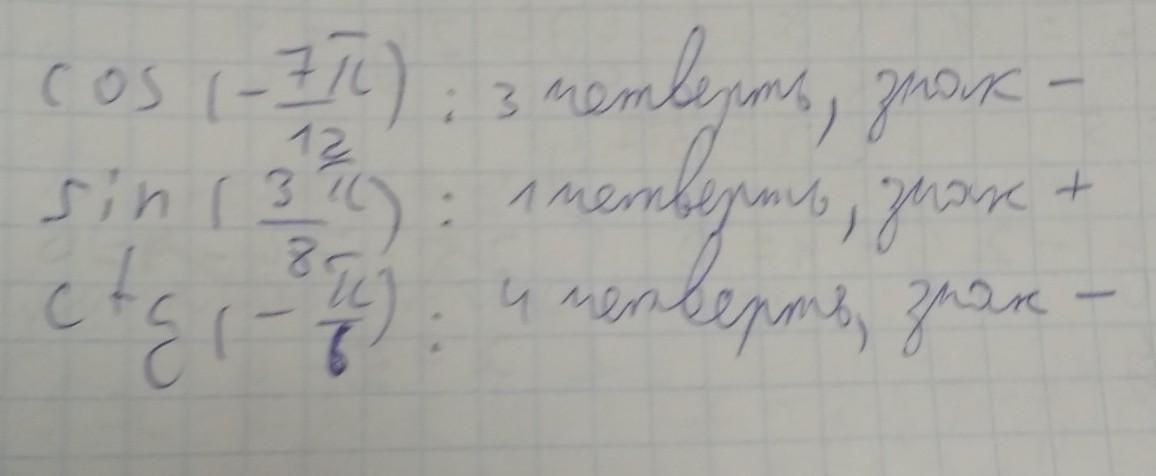 cos (-7π/12) : 3 четверть, знак -
sin (3π/8) : 1 четверть, знак +
ctg (-π/6) : 4 четверть, знак -